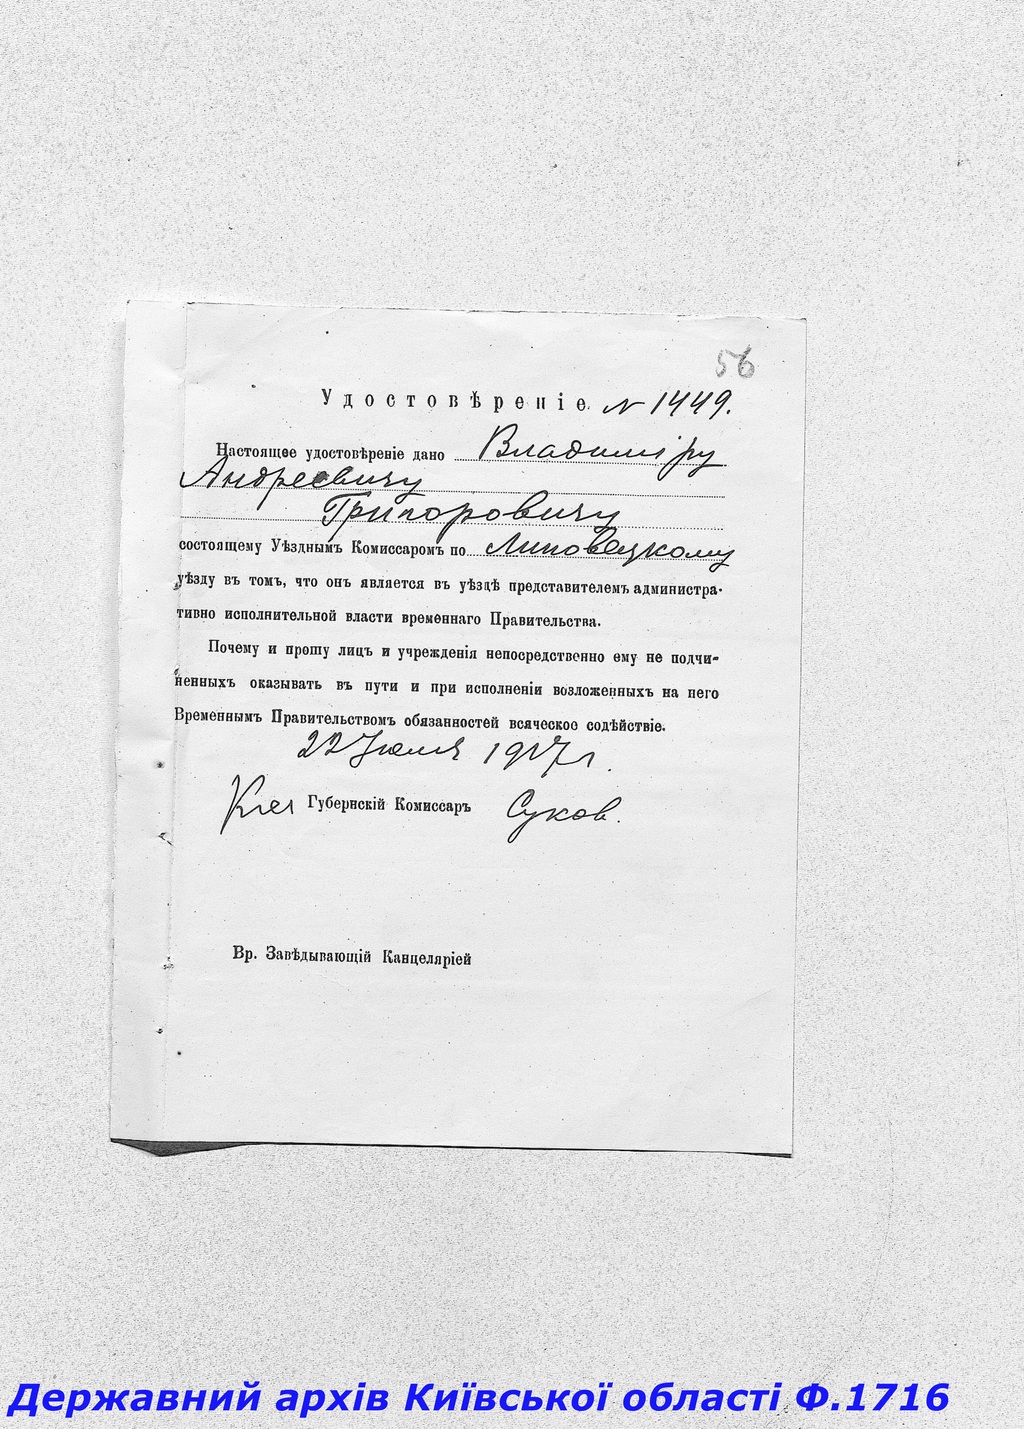 56
Удостовѣреніе. № 1449.
Настоящее удостовѣреніе дано Владиміру
Андреевичу
Григоровичу
состоящему Уѣзднымъ Комиссаромъ по Липовецкому
уѣзду въ томъ, что онъ является въ уѣздѣ представителемъ администра-
тивно исполнительной власти временнаго Правительства.
Почему и прошу лицъ и учрежденія непосредственно ему не подчи-
ненныхъ оказывать въ пути и при исполненіи возложенныхъ на него
Временнымъ Правительствомъ обязанностей всяческое содѣйствіе.
22 Июля 1917 г.
Губернскій Комиссаръ Суков.
Вр. Завѣдывающій Канцеляріей
Державний архів Київської області Ф.1716